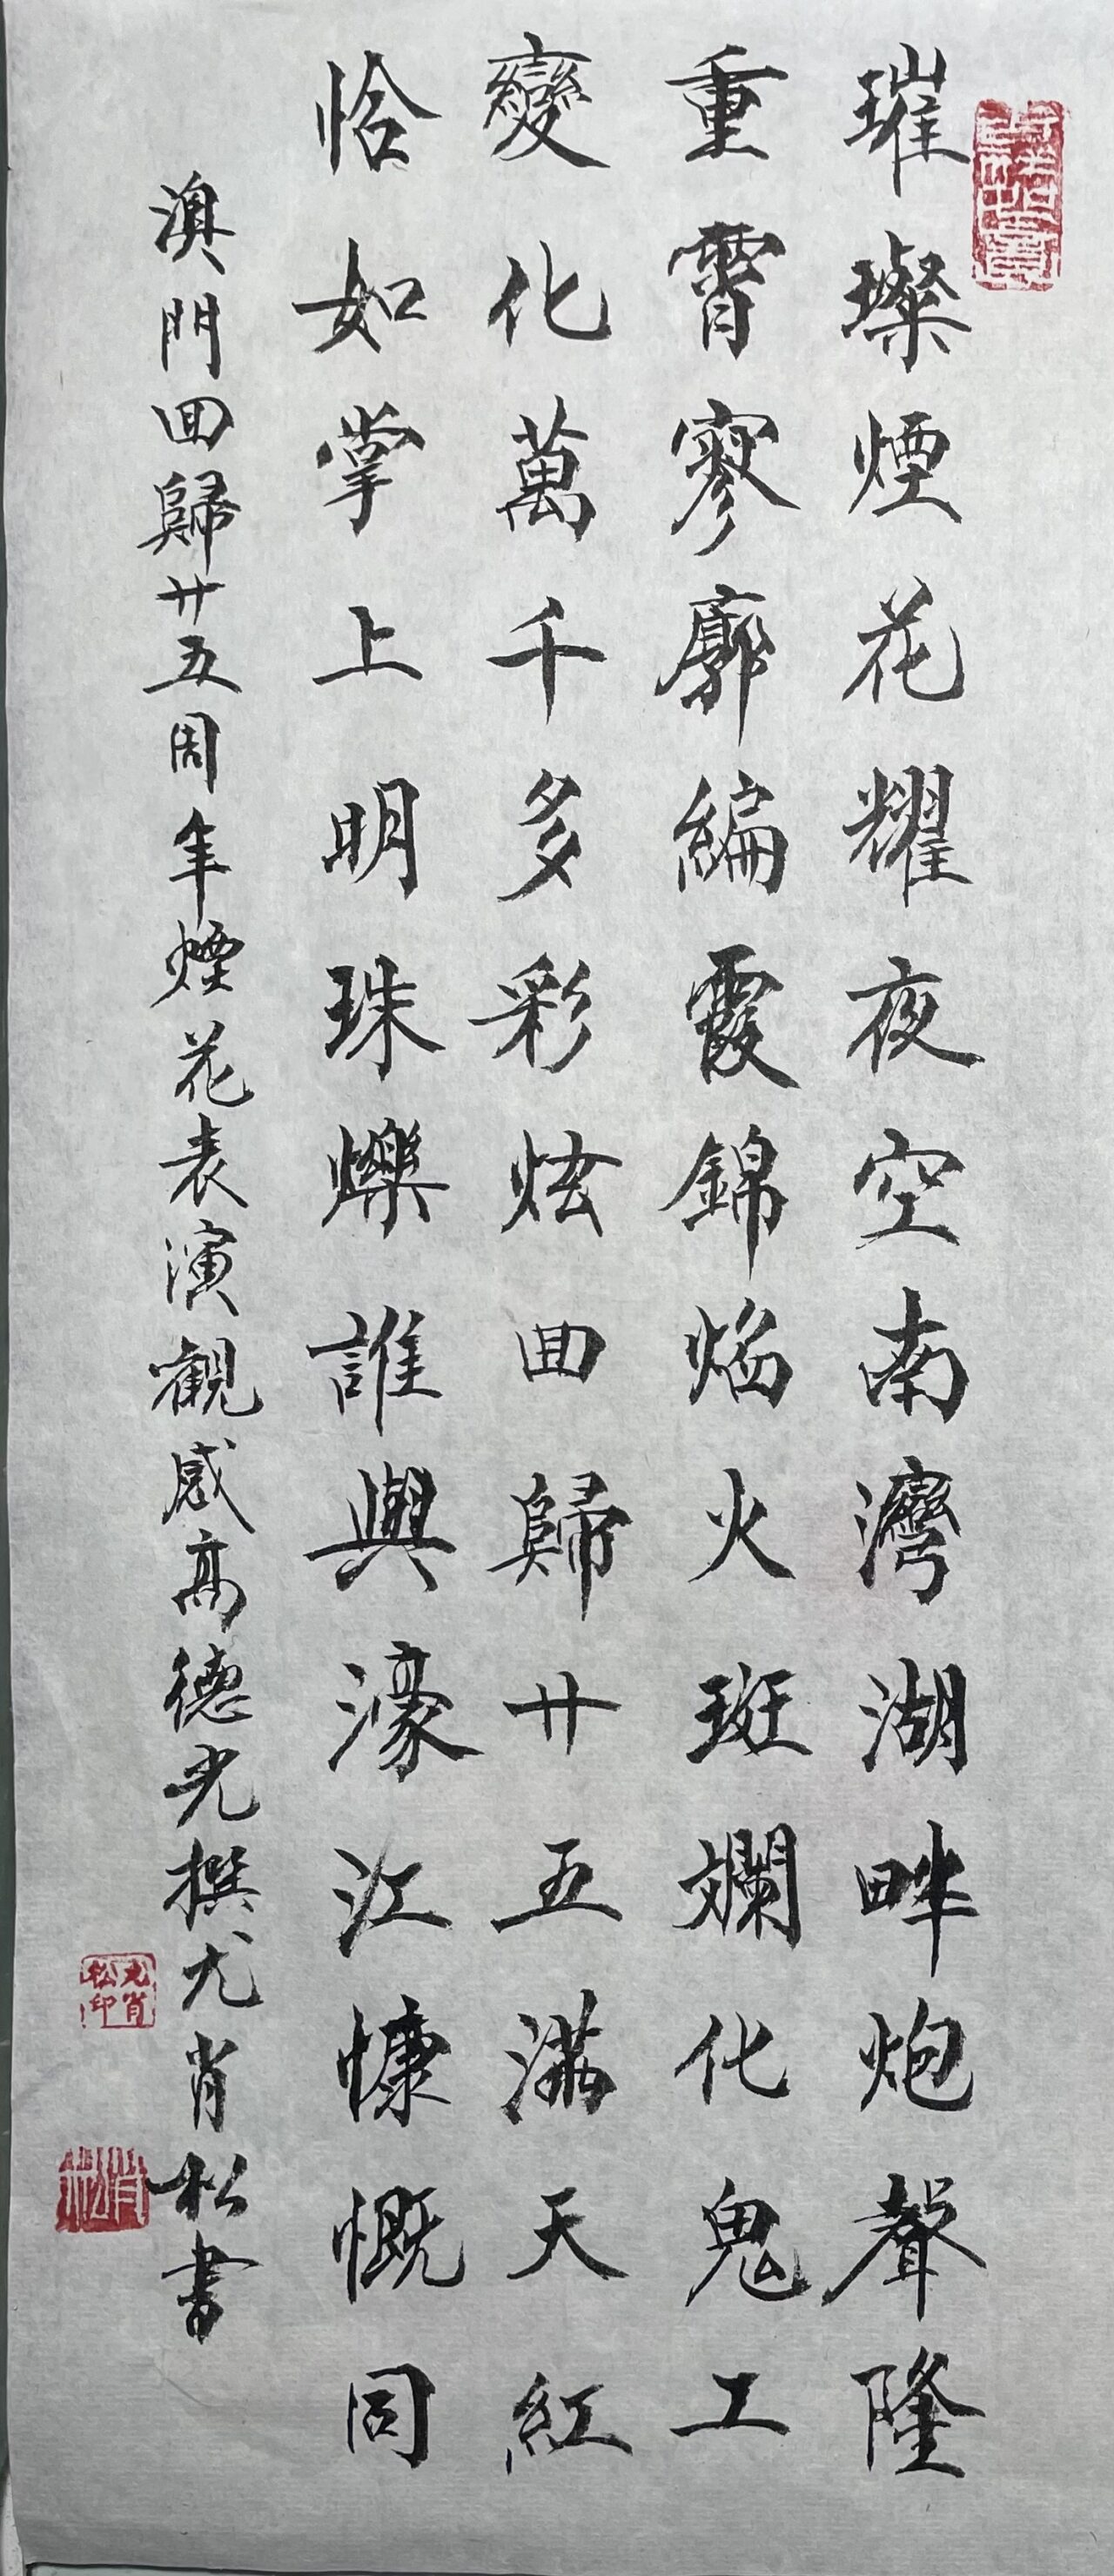 璀璨煙花耀夜空南灣湖畔炮聲隆
重霄寥廓編霞錦焰火斑斕化鬼工
變化萬千多彩炫回歸廿五滿天紅
恰如掌上明珠爍誰與濠江慷慨同
澳門回歸廿五周年煙花表演觀感高德光撰尤肖松書
尤肖松印